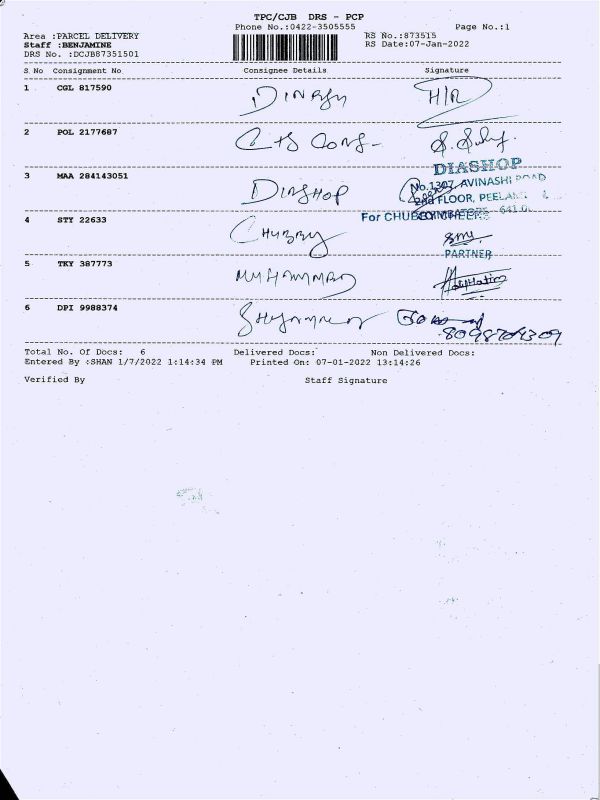 TPC/CJB DRS - PCP
Phone No.:0422-3505555 Page No.:1
Area :PARCEL DELIVERY RS No.:873515
Staff :BENJAMINE RS Date:07-Jan-2022
DRS No. :DCJB87351501
S No Consignment No Consignee Details Signature
1 CGL 817590 H/R
2 POL 2177687
DIASHOP
3 MAA 284143051 No.1307, AVINASHI ROAD
DIASHOP 2nd FLOOR, PEELAM
4 STY 22633 CHUBBY For CHUBBY CHEEKS
PARTNER
5 TKY 387773 MUHAMMAD
6 DPI 9988374
Total No. Of Docs: 6 Delivered Docs: Non Delivered Docs:
Entered By :SHAN 1/7/2022 1:14:34 PM Printed On: 07-01-2022 13:14:26
Verified By Staff Signature